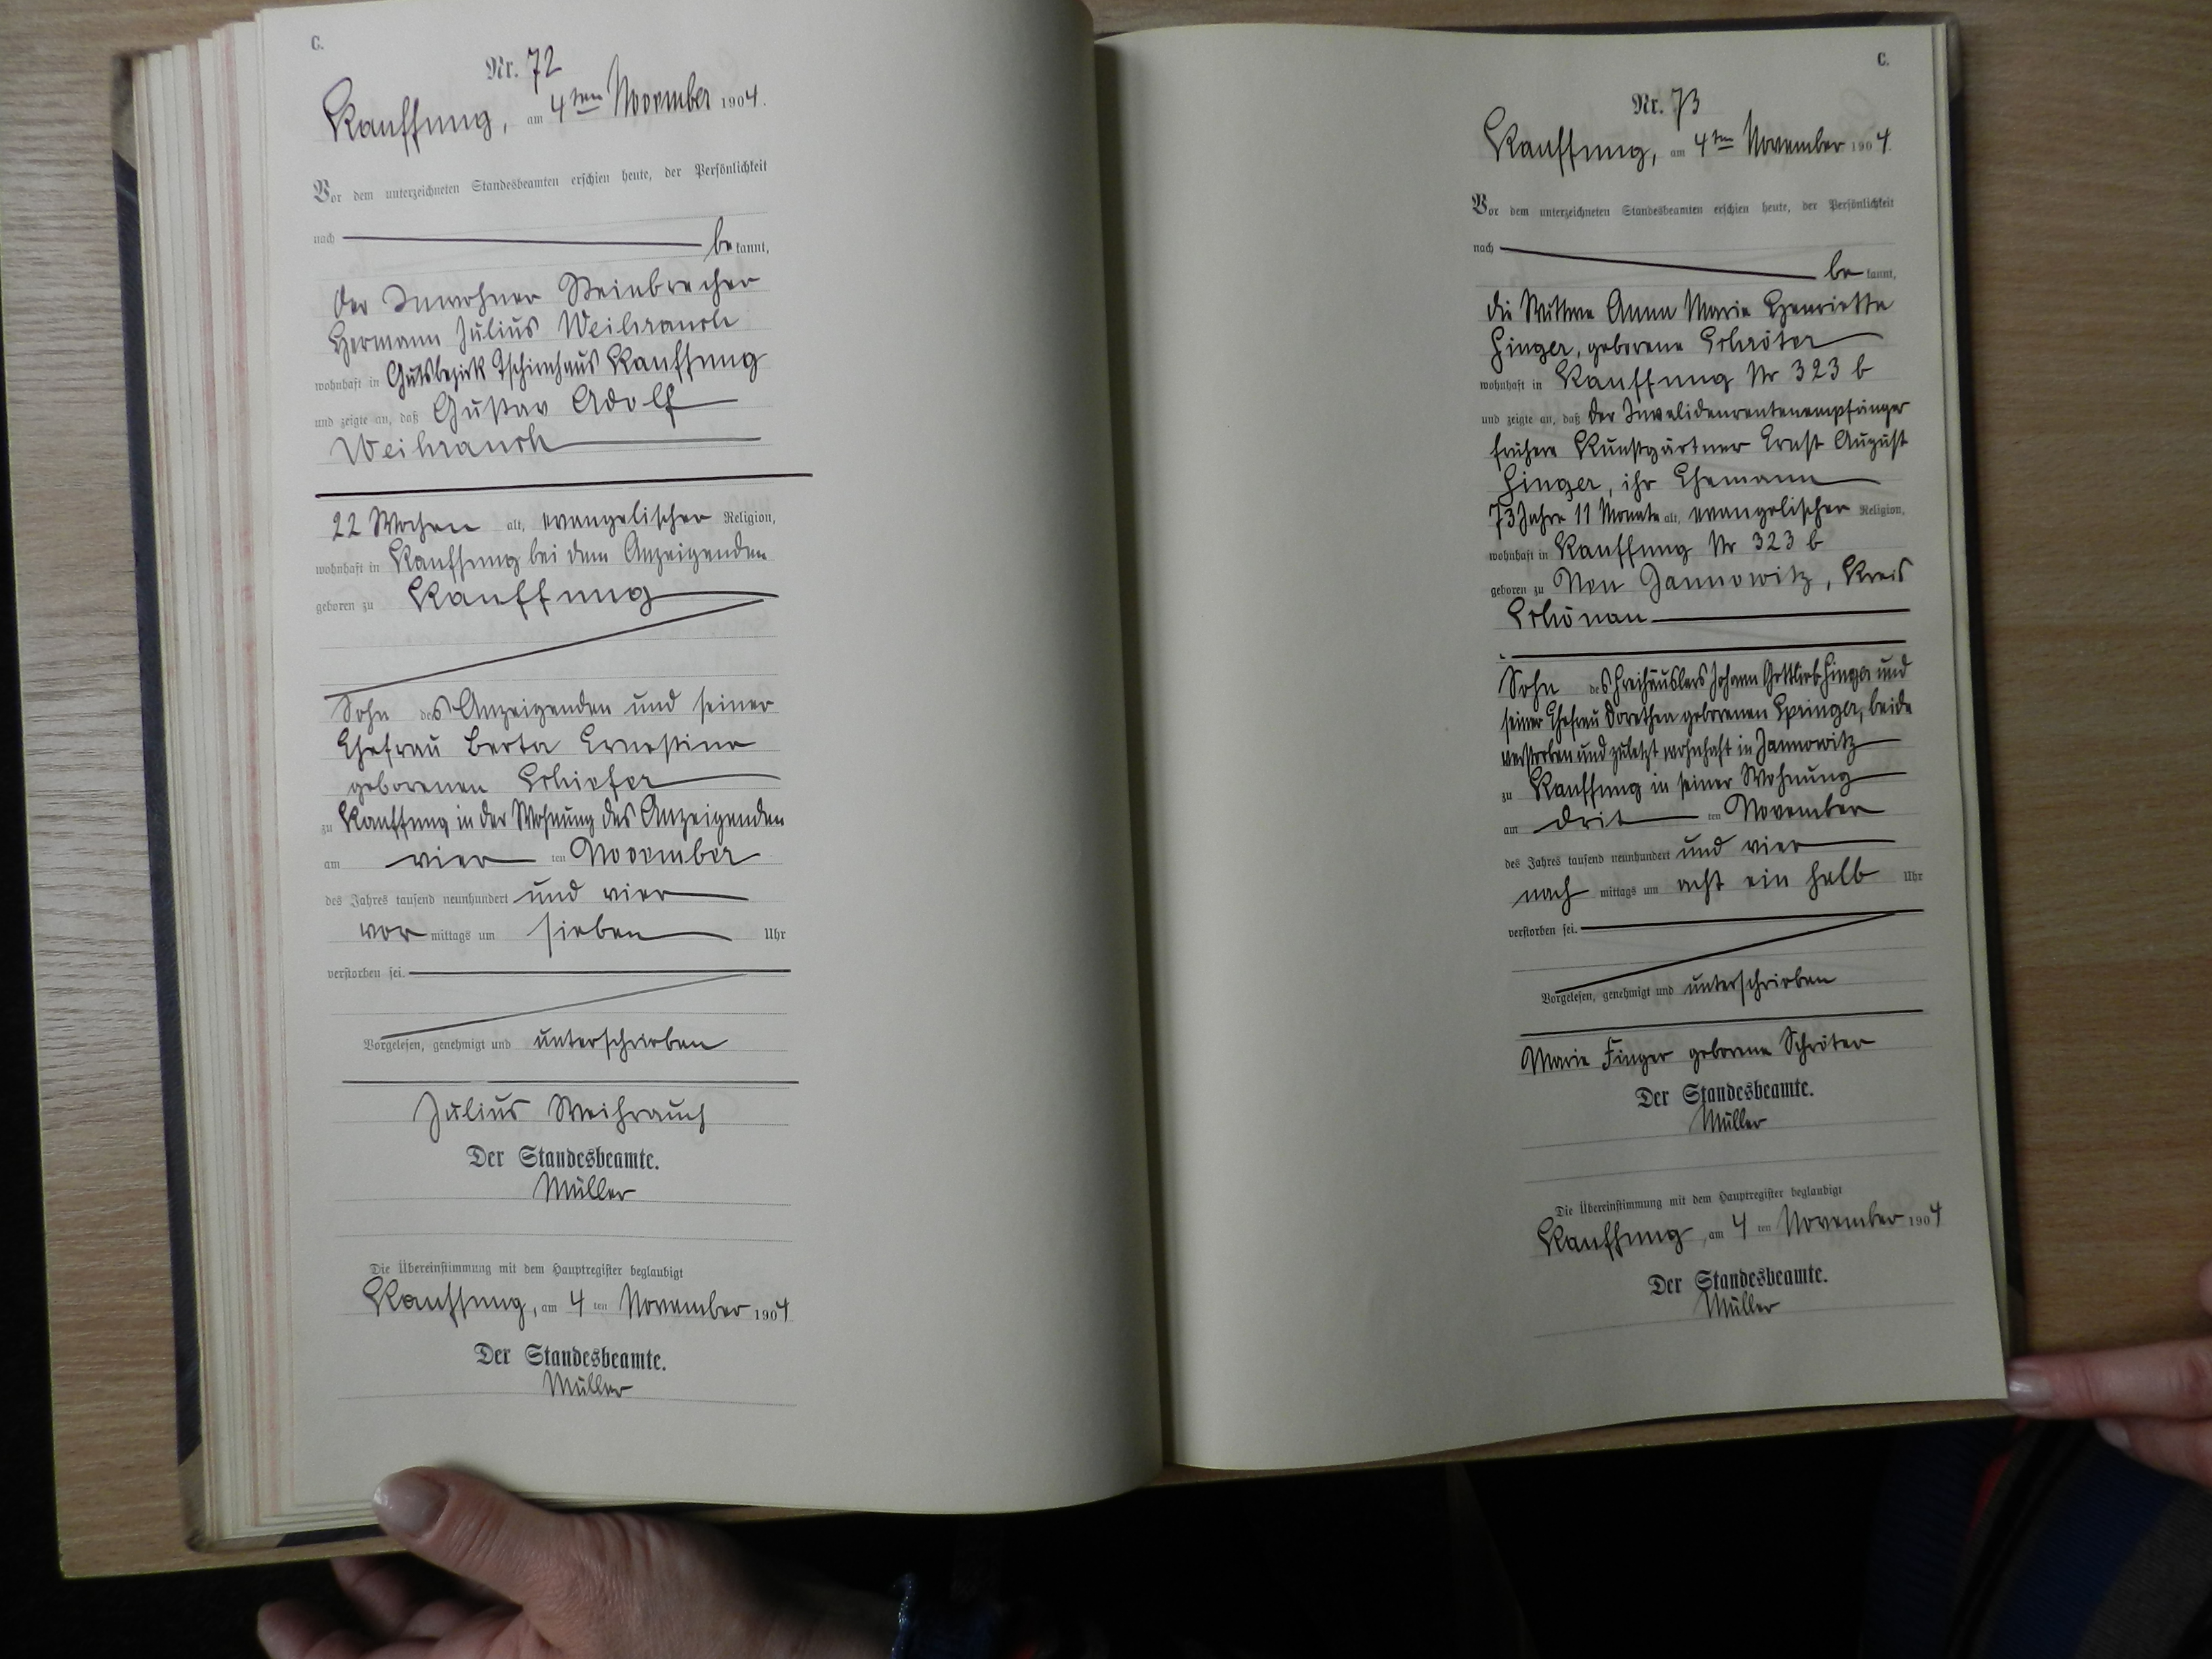 C.
Nr. 72
Kauffung, am 4ten November 1904.
Vor dem unterzeichneten Standesbeamten erschien heute, der Persönlichkeit
nach be kannt,
der Inwohner Steinbrecher
Hermann Julius Weihrauch
wohnhaft in Gutsbezirk Tschirnhaus Kauffung
und zeigte an, daß Gustav Adolf
Weihrauch
22 Wochen alt, evangelischer Religion,
wohnhaft in Kauffung bei dem Anzeigenden
geboren zu Kauffung
Sohn des Anzeigenden und seiner
Ehefrau Berta Ernestine
geborenen Schiefer
zu Kauffung in der Wohnung des Anzeigenden
am vier ten November
des Jahres tausend neunhundert und vier
vor mittags um sieben Uhr
verstorben sei.
Vorgelesen, genehmigt und unterschrieben
Julius Weihrauch
Der Standesbeamte.
Müller
Die Übereinstimmung mit dem Hauptregister beglaubigt
Kauffung, am 4 ten November 1904
Der Standesbeamte.
Müller
C.
Nr. 73
Kauffung, am 4ten November 1904.
Vor dem unterzeichneten Standesbeamten erschien heute, der Persönlichkeit
nach be kannt,
die Wittwe Anna Marie Henriette
Finger, geborene Schröter
wohnhaft in Kauffung Nr 323 b
und zeigte an, daß der Invalidenrentenempfänger
frühere Kunstgärtner Ernst August
Finger, ihr Ehemann
73 Jahre 11 Monate alt, evangelischer Religion,
wohnhaft in Kauffung Nr 323 b
geboren zu Neu Jannowitz, Kreis
Schönau
Sohn des Freihäuslers Johann Gottlieb Finger und
seiner Ehefrau Dorothea geborenen Springer, beide
verstorben und zuletzt wohnhaft in Jannowitz
zu Kauffung in seiner Wohnung
am drit ten November
des Jahres tausend neunhundert und vier
nach mittags um acht ein halb Uhr
verstorben sei.
Vorgelesen, genehmigt und unterschrieben
Marie Finger geborene Schröter
Der Standesbeamte.
Müller
Die Übereinstimmung mit dem Hauptregister beglaubigt
Kauffung, am 4 ten November 1904
Der Standesbeamte.
Müller